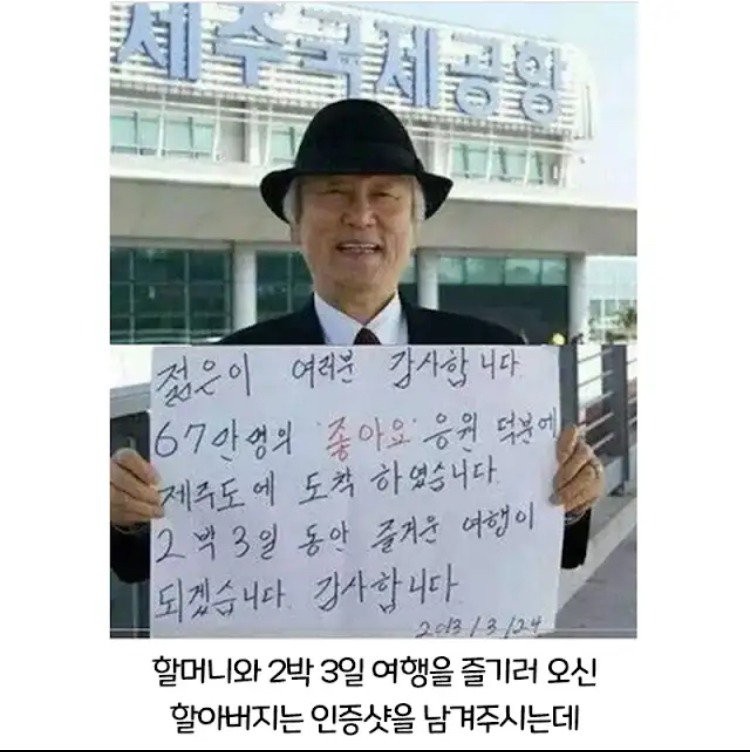 제주국제공항
젊은이 여러분 감사합니다
67만명의 '좋아요' 응원 덕분에
제주도에 도착 하였습니다.
2박 3일 동안 즐거운 여행이
되겠습니다. 감사합니다
2013/3/24
할머니와 2박 3일 여행을 즐기러 오신
할아버지는 인증샷을 남겨주시는데